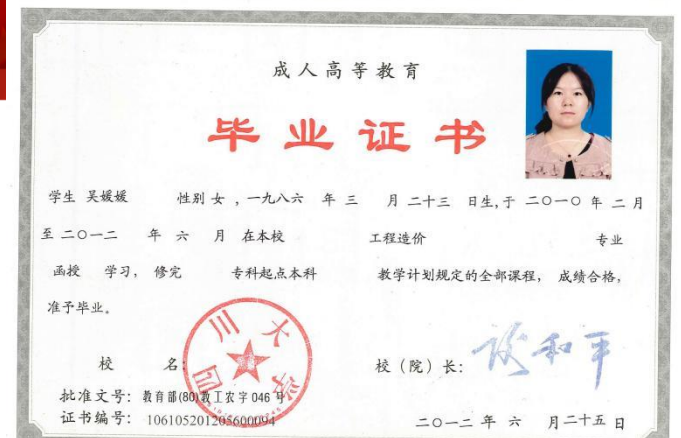 成人高等教育
毕业证书
学生 吴媛媛 性别 女 ，一九八六 年 三 月 二十三 日生,于 二○一○ 年 二月
至 二○一二 年 六 月 在本校 工程造价 专业
函授 学习， 修完 专科起点本科 教学计划规定的全部课程， 成绩合格，
准予毕业。
四川大学
校 名: 校（院）长: 谢和平
批准文号: 教育部(80)教工农字 046 号
证书编号: 106105201205600094 二○一二 年 六 月二十五 日